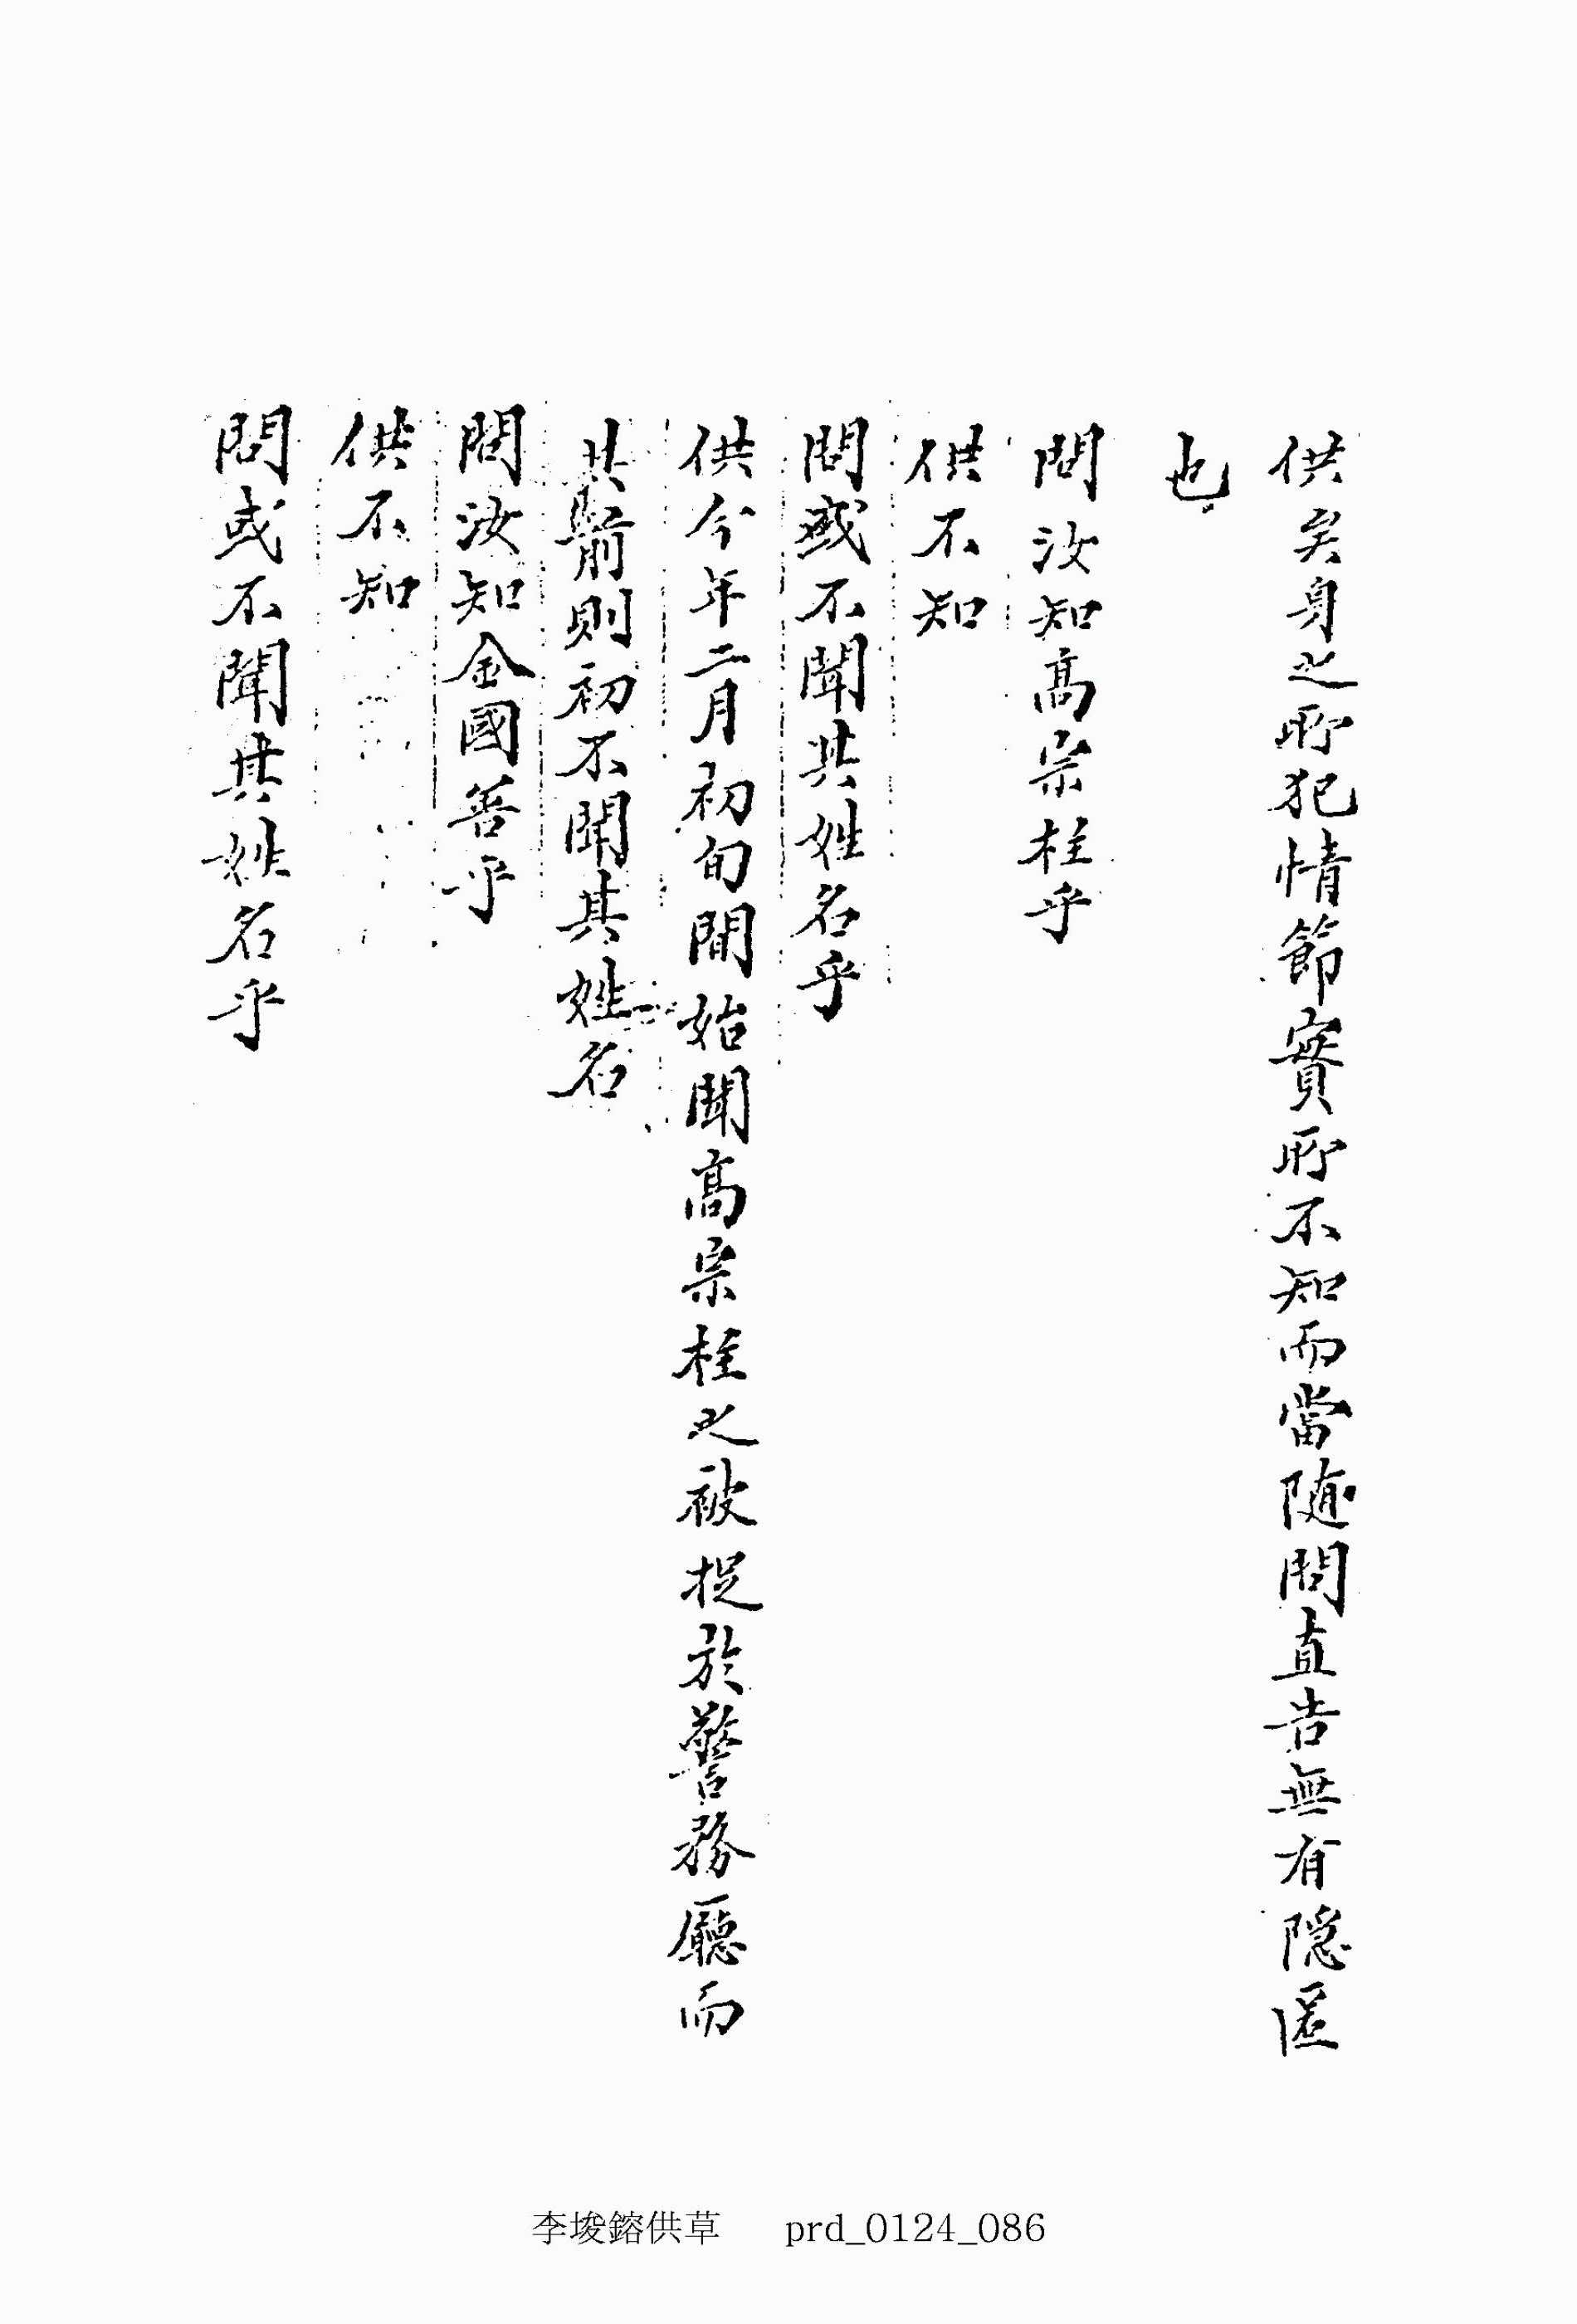 供矣身之所犯情節實所不知而當随問直告無有隠匿
也
問汝知高宗柱乎
供不知
問或不聞其姓名乎
供今年二月初旬間始聞高宗柱之被捉於警務廳而
其前則初不聞其姓名
問汝知金國善乎
供不知
問或不聞其姓名乎
李埈鎔供草 prd_0124_086